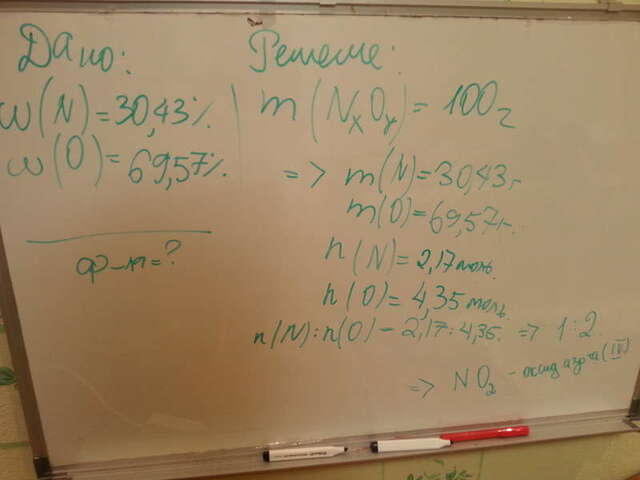 Дано:
w(N)=30,43%
w(O)=69,57%
ф-ла=?
Решение:
m(NxOy)=100г
=> m(N)=30,43г
m(O)=69,57г.
n(N)=2,17моль
n(O)=4,35моль
n(N):n(O)-2,17:4,35 => 1:2.
=> NO₂ - оксид азота (IV)